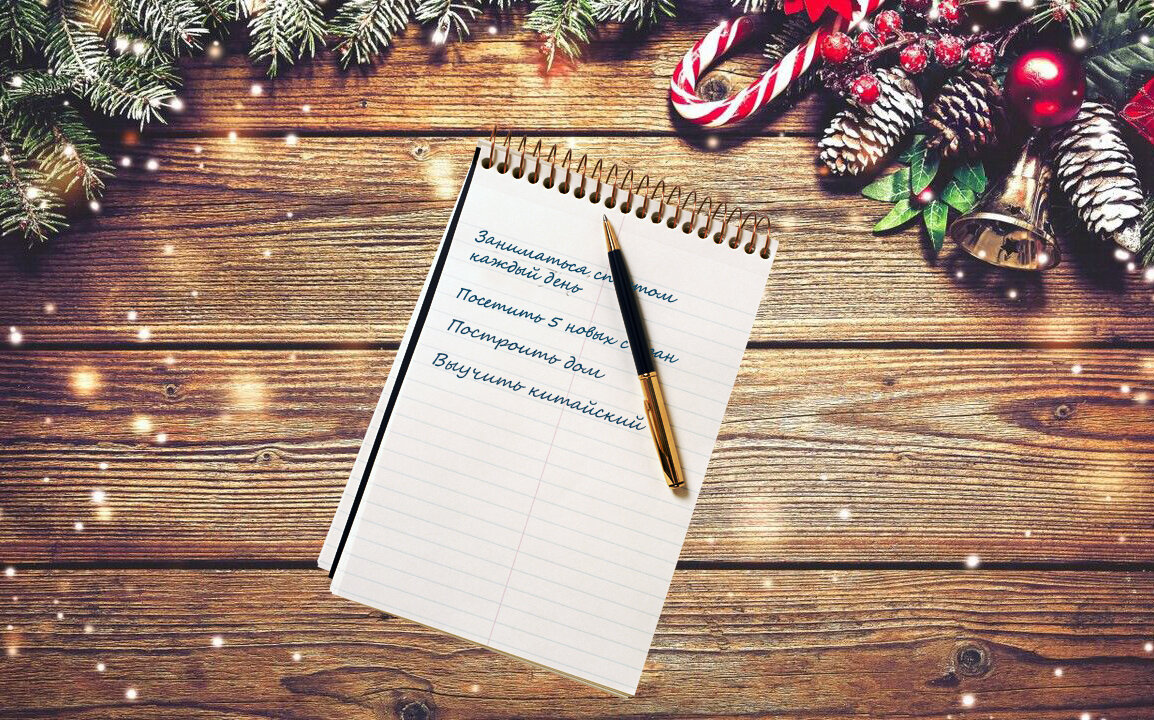 Заниматься спортом
каждый день
Посетить 5 новых стран
Построить дом
Выучить китайский